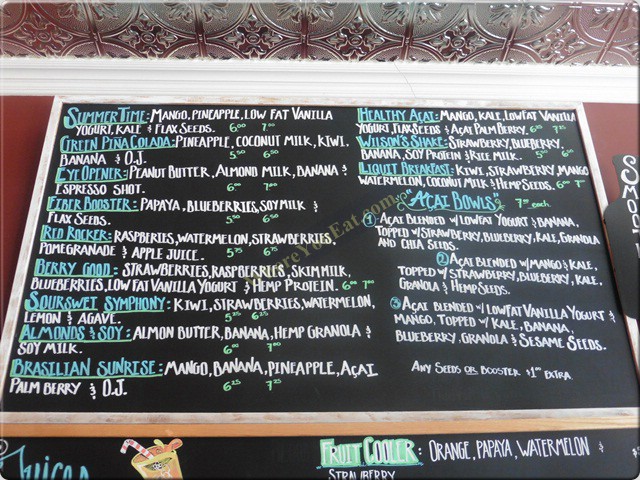 SUMMER TIME: MANGO, PINEAPPLE, LOW FAT VANILLA
YOGURT, KALE & FLAX SEEDS. 6.00 7.00
GREEN PIÑA COLADA: PINEAPPLE, COCONUT MILK, KIWI.
BANANA & O.J. 5.50 6.50
EYE OPENER: PEANUT BUTTER, ALMOND MILK, BANANA &
ESPRESSO SHOT. 6.00 7.00
FIBER BOOSTER: PAPAYA, BLUEBERRIES, SOY MILK &
FLAX SEEDS. 5.50 6.50
RED ROCKER: RASPBERIES, WATERMELON, STRAWBERRIES,
POMEGRANADE & APPLE JUICE. 5.75 6.75
BERRY GOOD: STRAWBERRIES, RASPBERRIES, SKIM MILK,
BLUEBERRIES, LOW FAT VANILLA YOGURT & HEMP PROTEIN. 6.00 7.00
SOURSWEET SYMPHONY: KIWI, STRAWBERRIES, WATERMELON,
LEMON & AGAVE. 5.25 6.25
ALMONDS & SOY: ALMON BUTTER, BANANA, HEMP GRANOLA &
SOY MILK. 6.00 7.00
BRASILIAN SUNRISE: MANGO, BANANA, PINEAPPLE, AÇAI
PALM BERRY & O.J. 6.25 7.25
HEALTHY AÇAI: MANGO, KALE, LOW FAT VANILLA
YOGURT, FLAX SEEDS & AÇAI PALM BERRY. 6.25 7.25
WILSON'S SHAKE: STRAWBERRY, BLUEBERRY,
BANANA, SOY PROTEIN & RICE MILK. 5.00 6.00
LIQUIT BREAKFAST: KIWI, STRAWBERRY, MANGO
WATERMELON, COCONUT MILK & HEMP SEEDS. 6.00 7.00
AÇAI BOWLS 7.50 each.
1 AÇAI BLENDED W/ LOW FAT YOGURT & BANANA,
TOPPED W/ STRAWBERRY, BLUEBERRY, KALE, GRANOLA
AND CHIA SEEDS.
2 AÇAI BLENDED W/ MANGO & KALE,
TOPPED W/ STRAWBERRY, BLUEBERRY, KALE,
GRANOLA & HEMP SEEDS.
3 AÇAI BLENDED W/ LOW FAT VANILLA YOGURT &
MANGO, TOPPED W/ KALE, BANANA,
BLUEBERRY, GRANOLA & SESAME SEEDS.
ANY SEEDS OR BOOSTER $1.00 EXTRA.
WhereYouEat.com
Juices
FRUIT COOLER: ORANGE, PAPAYA, WATERMELON &
STRAWBERRY
SMO